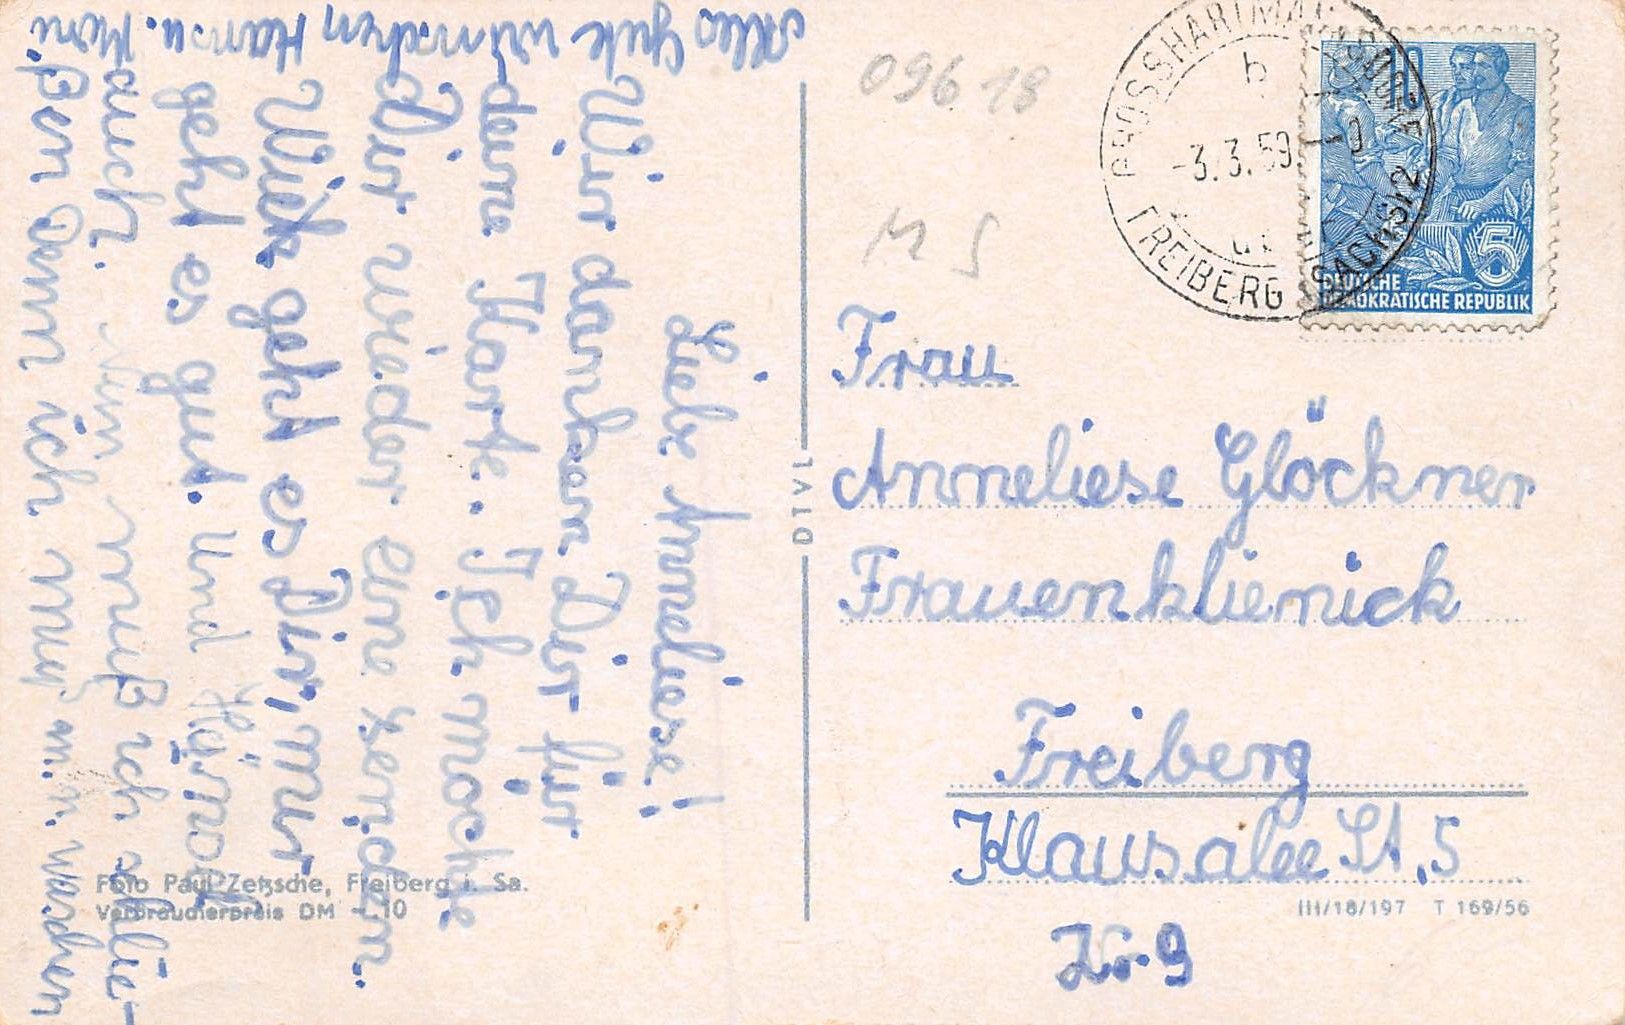 Liebe Anneliese!
Wir danken Dir für
deine Karte. Ich mochte
Dir wieder eine senden.
Wiek geht es Dir, mir
geht es gut. Und Helmut
auch. Nun muß ich schlie-
ßen denn ich muß m. n. waschen
Alles Gute wünschen Hans u.
096 18
M 5
GROSSHARTMANNSDORF
b
-3.3.59
FREIBERG (SACHS) 2
5
DEUTSCHE
DEMOKRATISCHE REPUBLIK
Frau
Anneliese Glöckner
Frauenklienick
Freiberg
Klausalee St. 5
Nr 9
DTVL
Foto Paul Zetzsche, Freiberg i. Sa.
Verbraucherpreis DM -.10
III/18/197 T 169/56